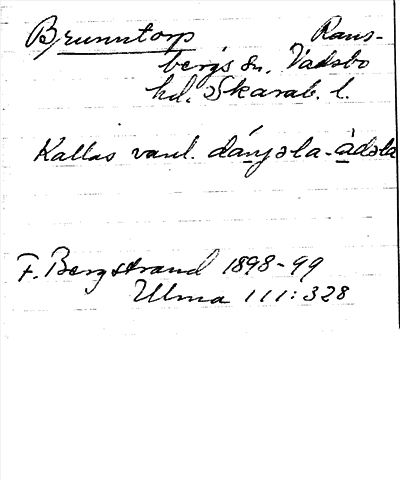 Brunntorp Rans-
bergs sn, Vadsbo
hd, Skarab. l.
Kallas vanl. dáŋəla-àdəla
F. Bergstrand 1898-99
Ulma 111:328